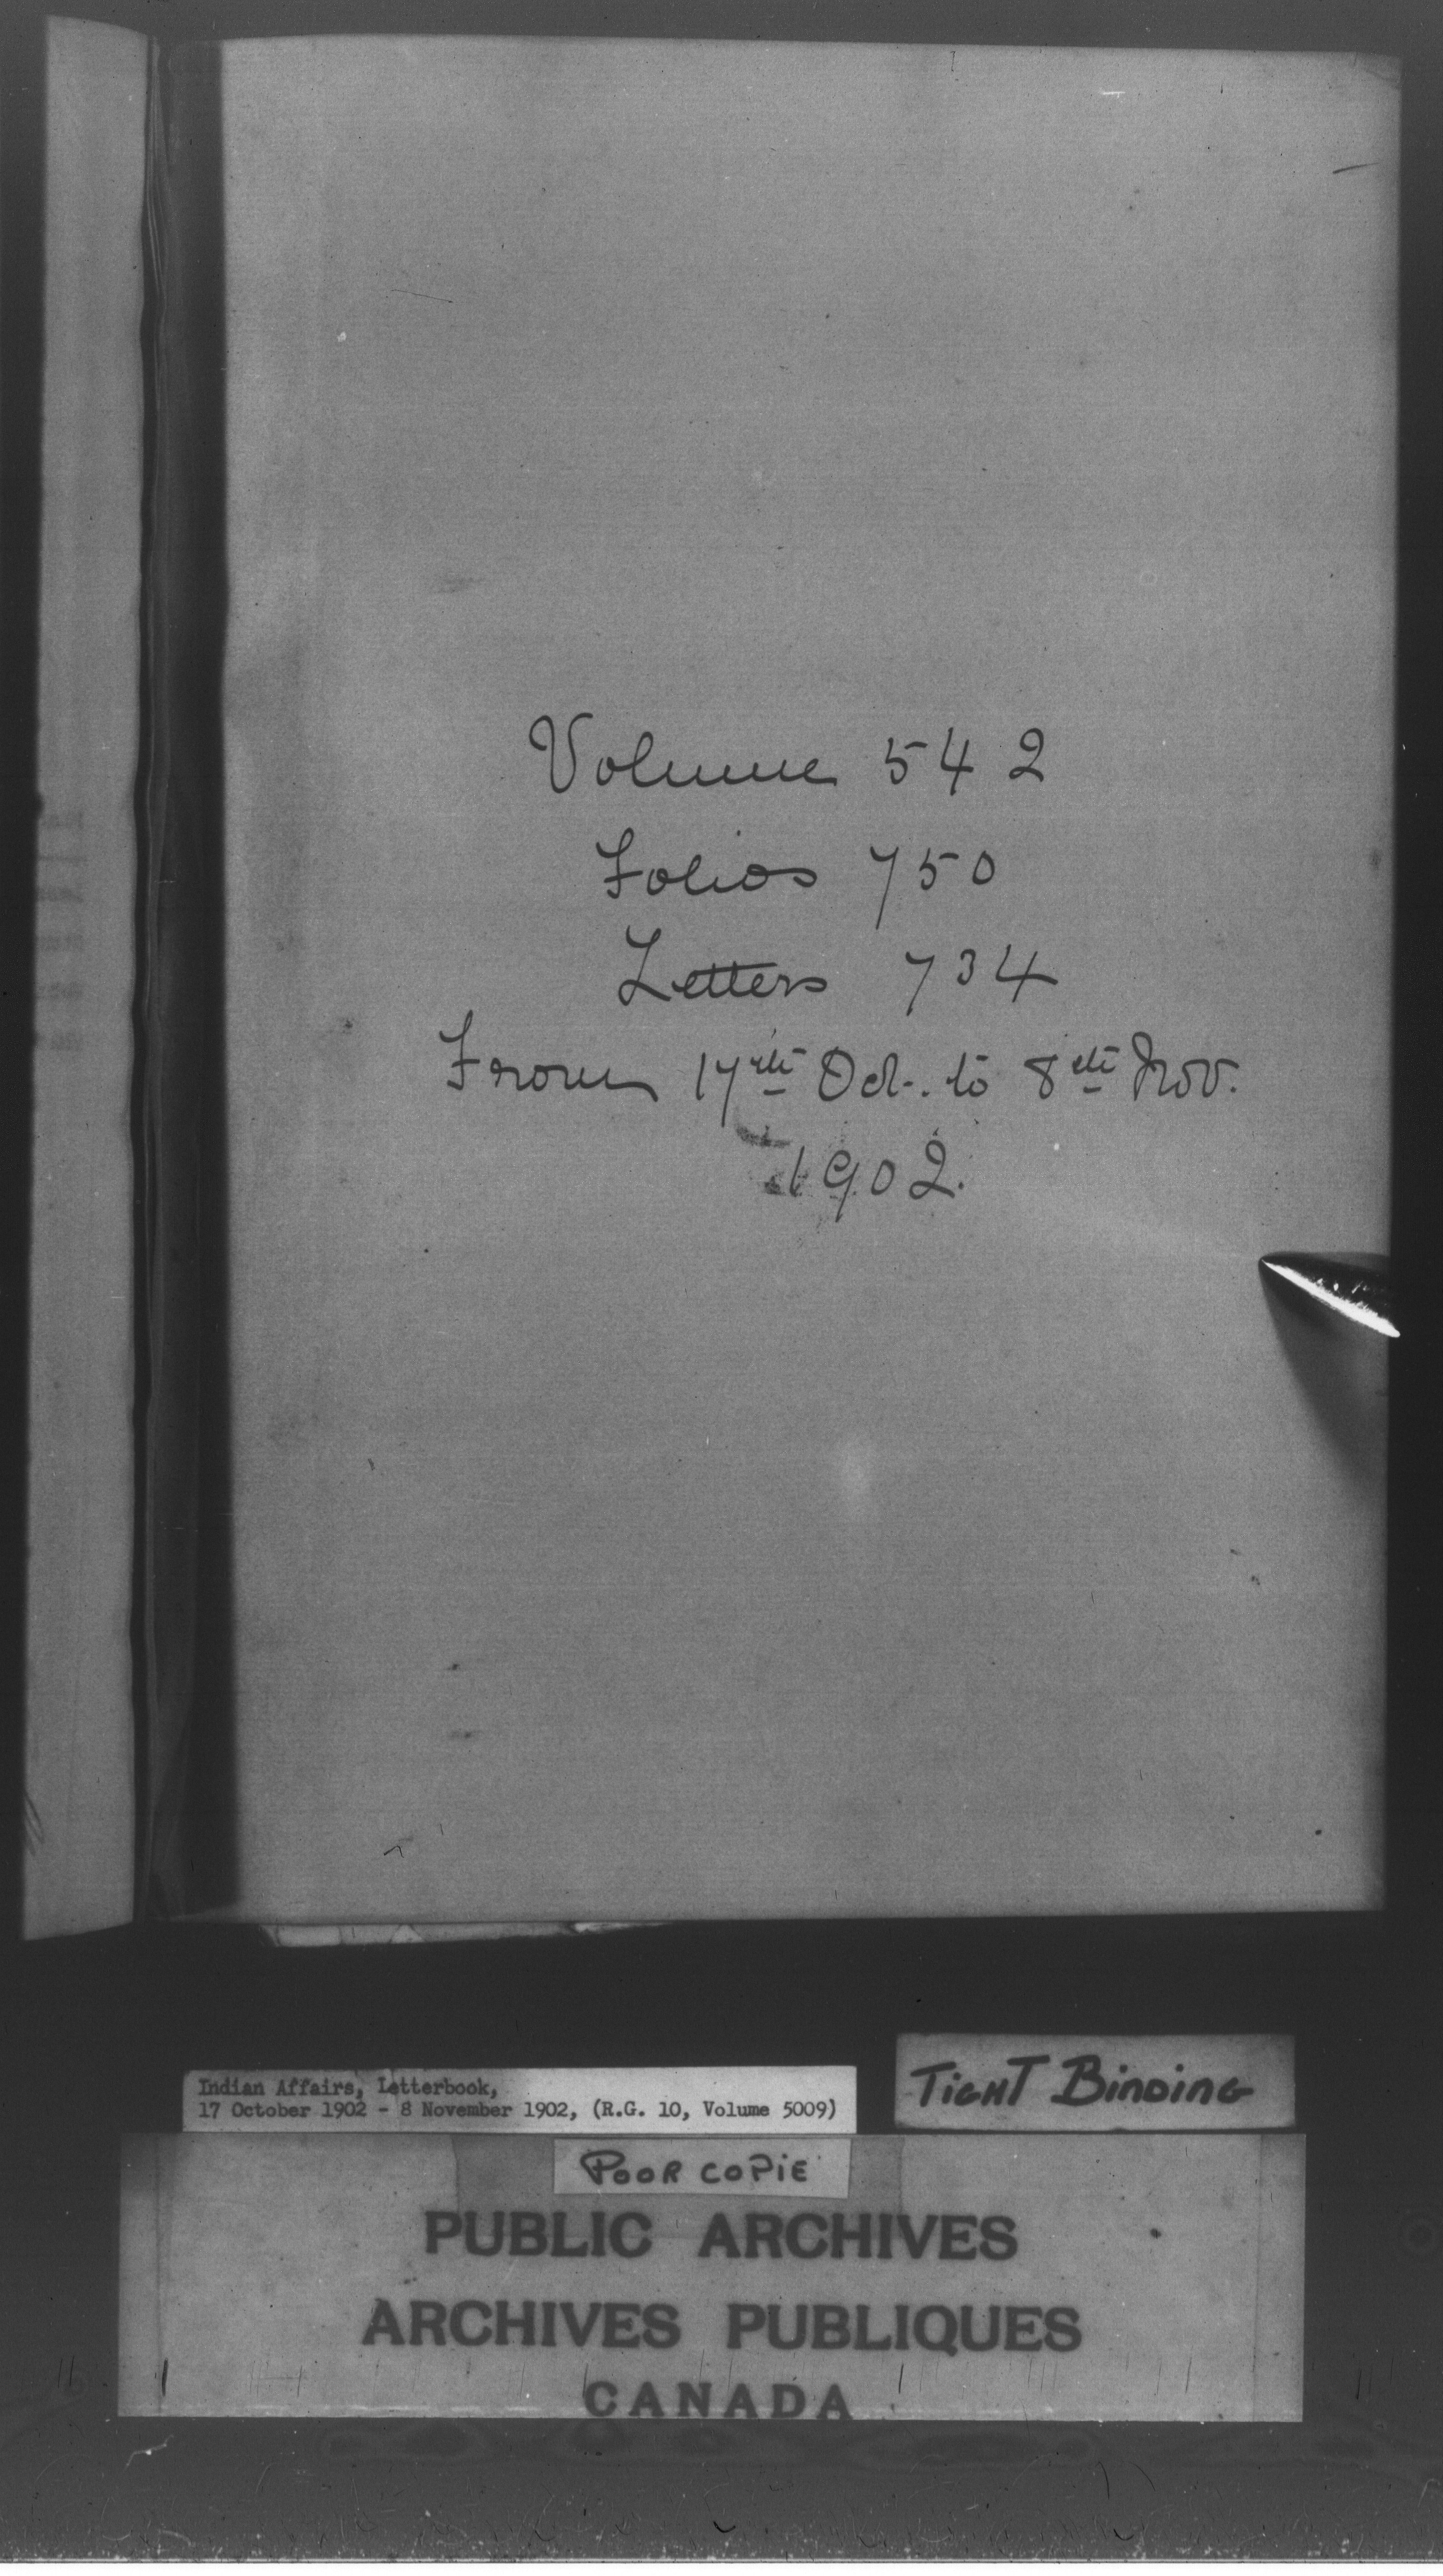 Volume 542
Folios 750
Letters 734
From 17th Oct. to 8th Nov.
1902.
Indian Affairs, Letterbook,
17 October 1902 - 8 November 1902, (R.G. 10, Volume 5009)
TIGHT BINDING
POOR COPIE
PUBLIC ARCHIVES
ARCHIVES PUBLIQUES
CANADA